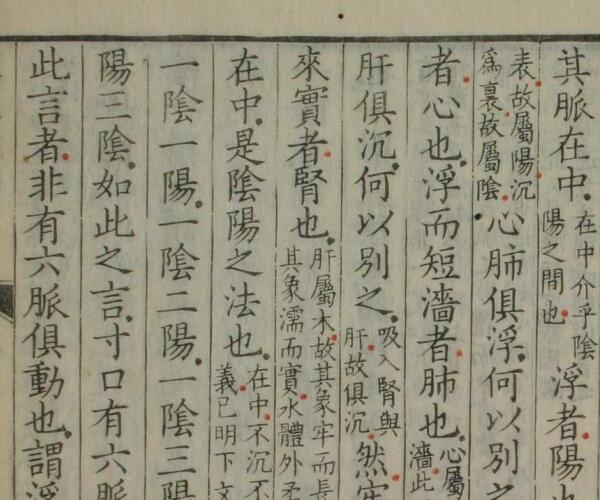 其脈在中
在中介乎陰
陽之間也
浮者陽
表故屬陽沉
爲裏故屬陰
心肺俱浮何以別之
者心也浮而短濇者肺也
心屬
濇此
肝俱沉何以別之
吸入腎與
肝故俱沉
然牢
來實者腎也
肝屬木故其象牢而長
其象濡而實水體外柔
在中是陰陽之法也
在中不沉不
義已明下文
一陰一陽一陰二陽一陰三陽
陽三陰如此之言寸口有六脈
此言者非有六脈俱動也謂浮